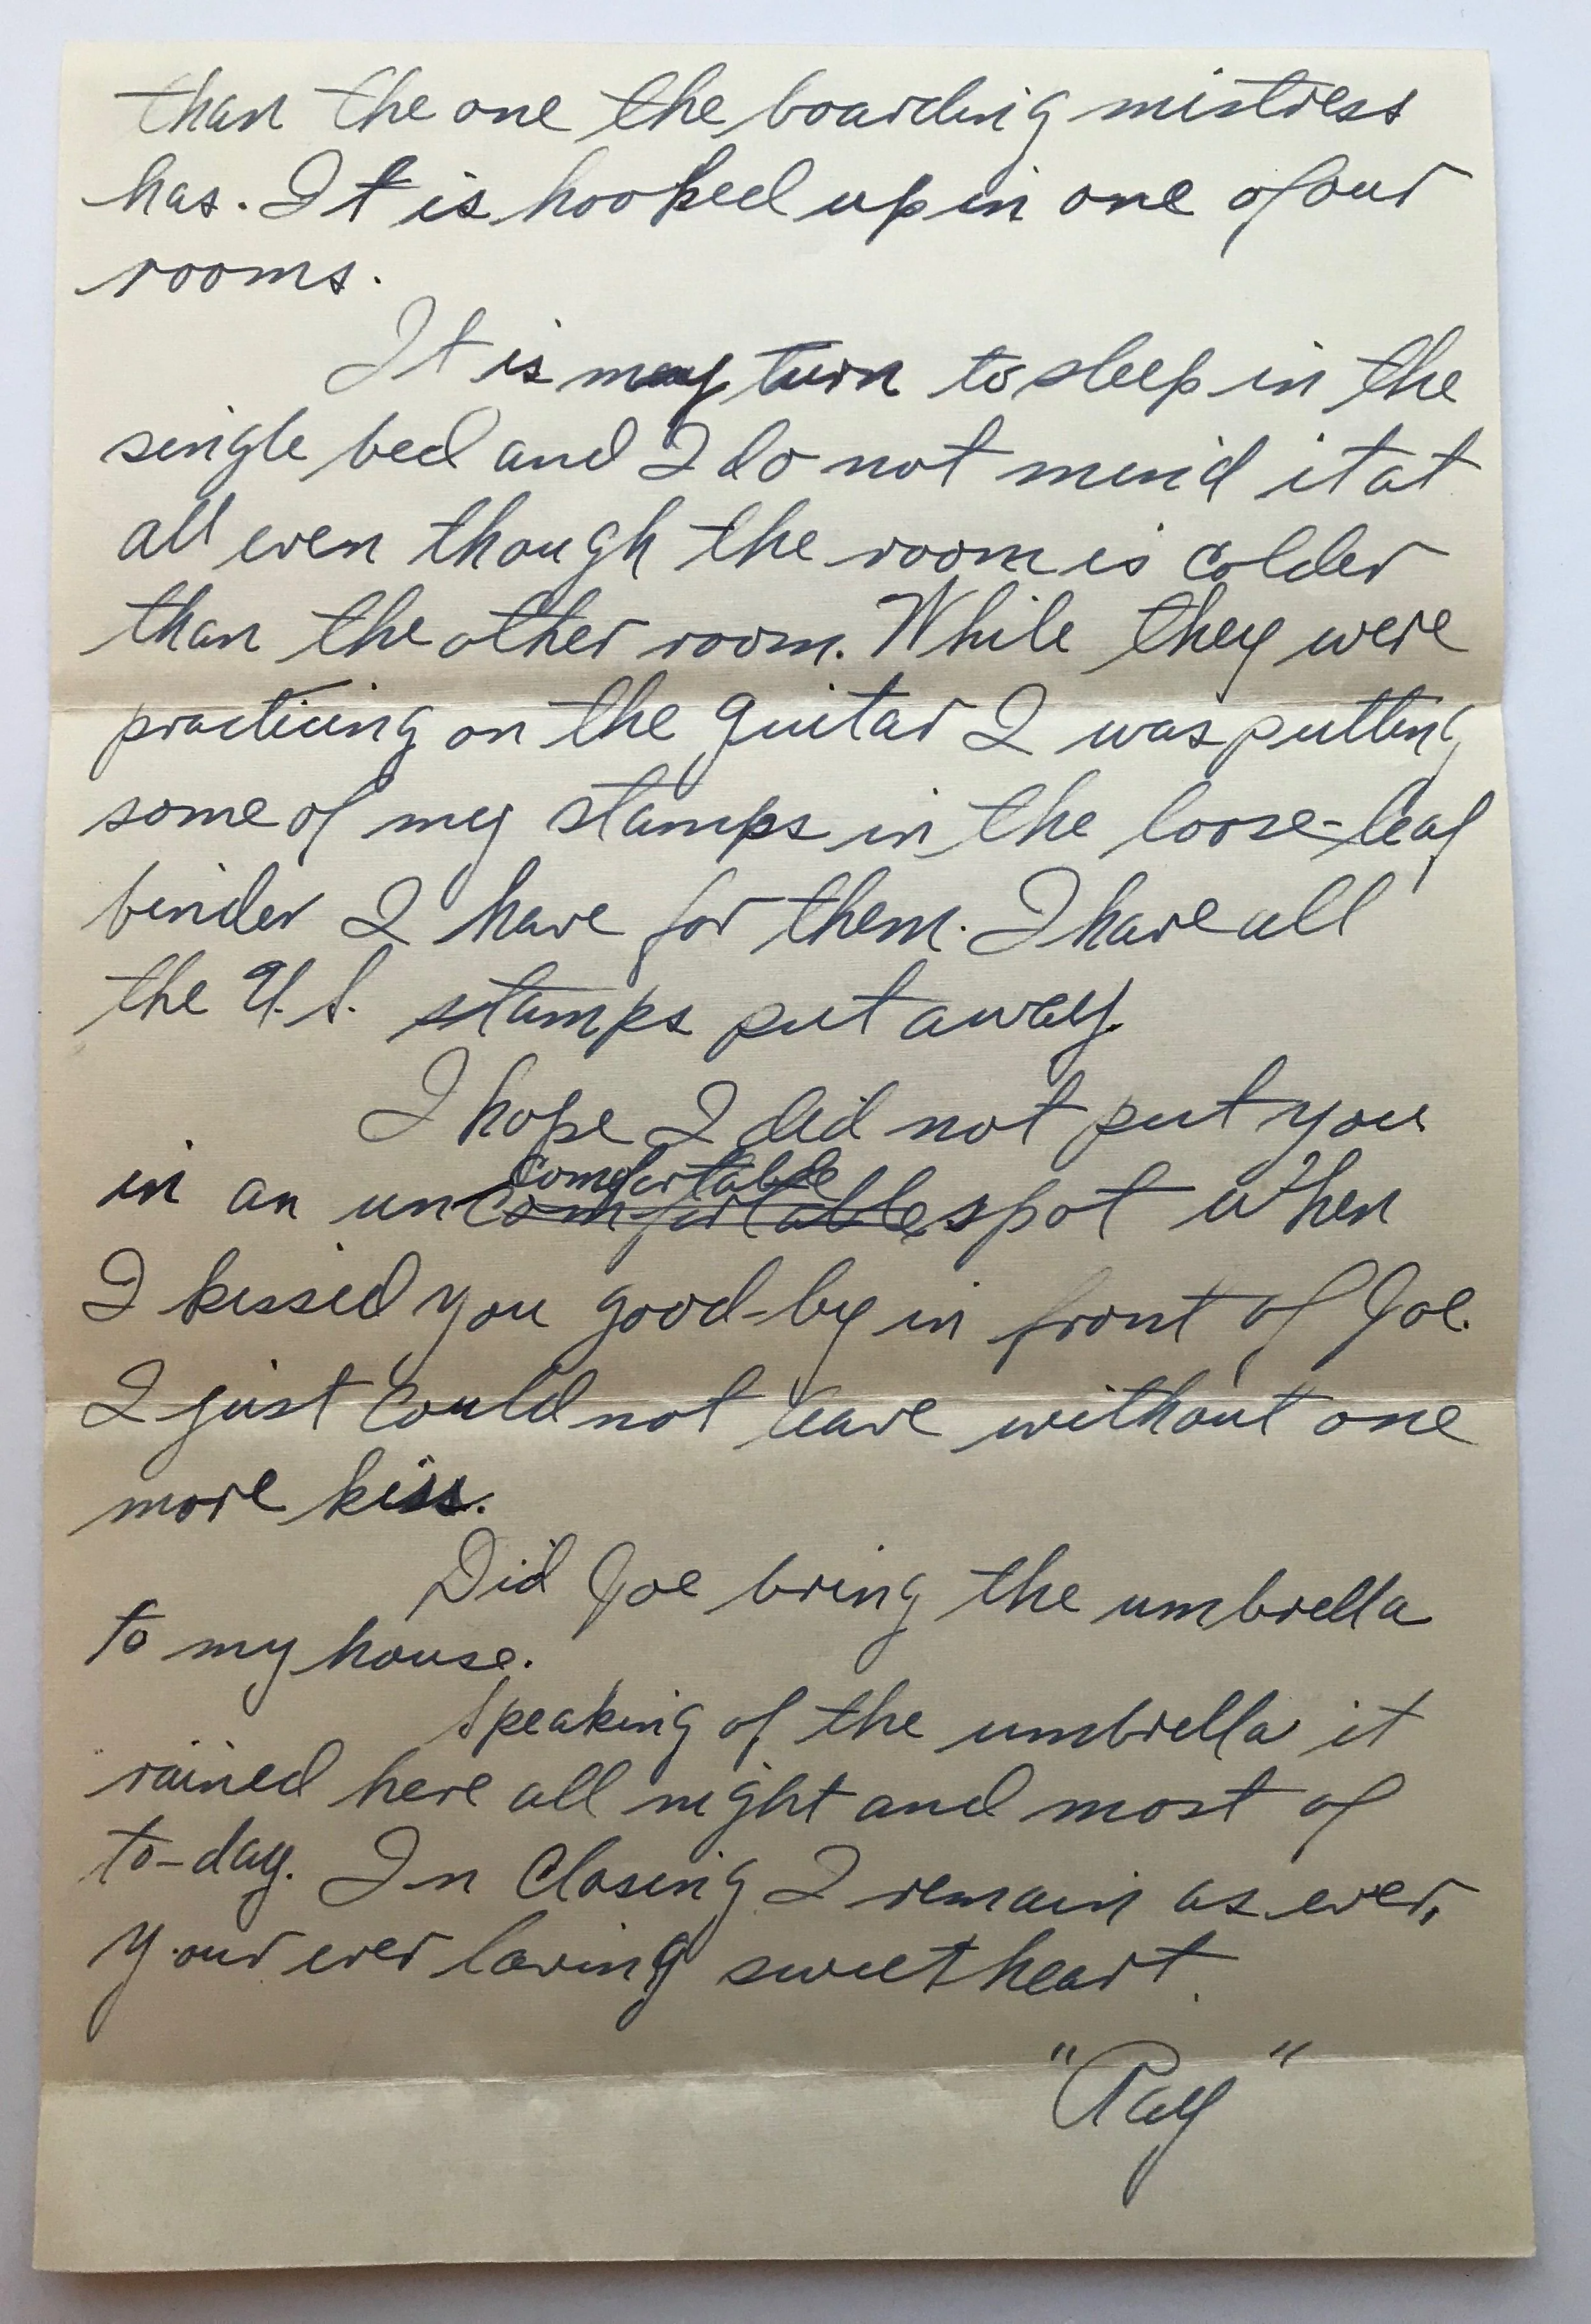 than the one the boarding mistress
has. It is hooked up in one of our
rooms.
It is my turn to sleep in the
single bed and I do not mind it at
all even though the room is colder
than the other room. While they were
practicing on the guitar I was putting
some of my stamps in the loose-leaf
binder I have for them. I have all
the U.S. stamps put away.
I hope I did not put you
comfortable
in an uncomfortable spot when
I kissed you good-by in front of Joe.
I just could not leave without one
more kiss.
Did Joe bring the umbrella
to my house.
Speaking of the umbrella it
rained here all night and most of
to-day. In Closing I remain as ever,
Your ever loving sweetheart.
"Ray"